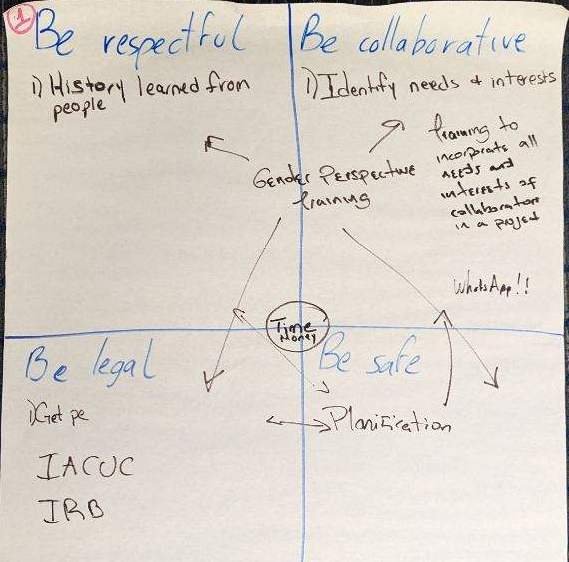 1
Be respectful
1) History learned from
people
Be collaborative
1) Identify needs & interests
Training to
incorporate all
needs and
interests of
collaborators
in a project
Gender Perspective
Training
WhatsApp!!
Time
Money
Be legal
1) Get pe
IACUC
IRB
Be safe
Planification